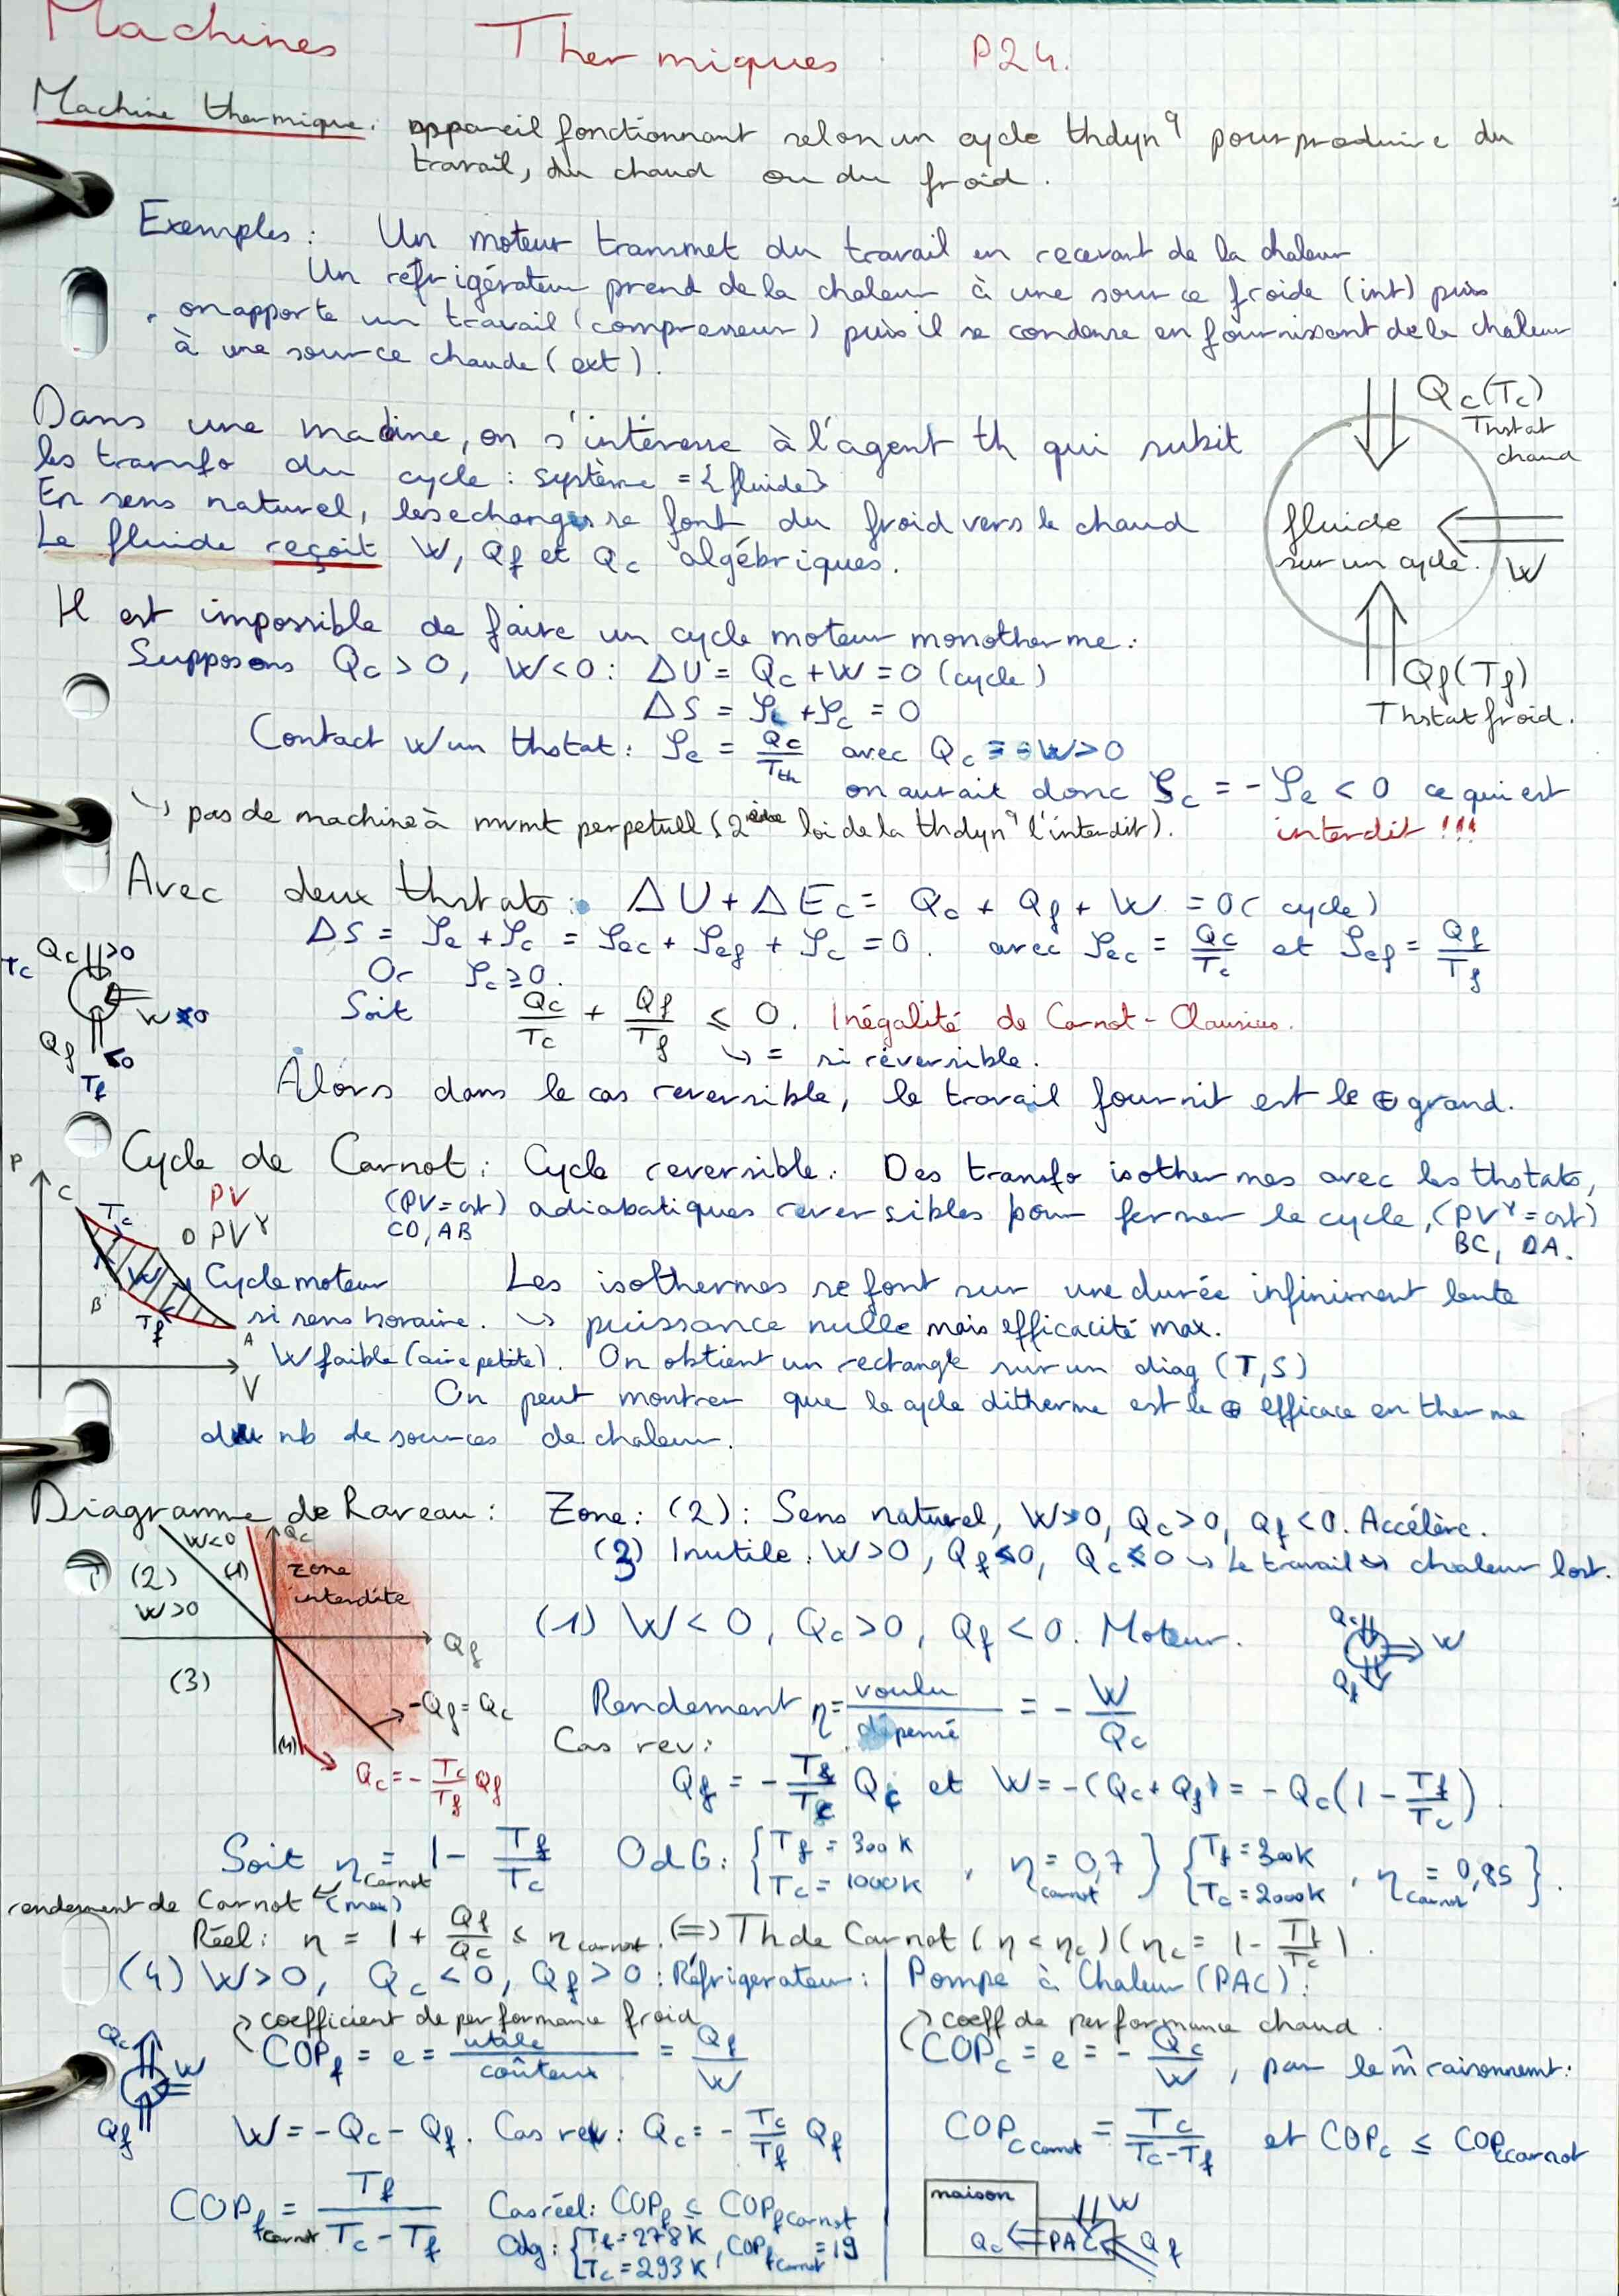 Machines Thermiques P24.
Machine thermique: appareil fonctionnant selon un cycle thdyn^q pour produire du
travail, du chaud ou du froid.
Exemples: Un moteur transmet du travail en recevant de la chaleur
Un réfrigérateur prend de la chaleur à une source froide (int) puis
on apporte un travail (compresseur) puis il se condense en fournissant de la chaleur
à une source chaude (ext).
Dans une machine, on s'intéresse à l'agent th qui subit
les transfo du cycle: système = {fluide}
En sens naturel, les echanges se font du froid vers le chaud
Le fluide reçoit W, Qf et Qc algébriques.
Qc (Tc)
Thstat
chaud
fluide
sur un cycle.
W
Qf (Tf)
Thstat froid.
Il est impossible de faire un cycle moteur monotherme:
Supposons Qc > 0, W < 0: ΔU = Qc + W = 0 (cycle)
ΔS = Se + Sc = 0
Contact w un thstat: Se = Qc/Tth avec Qc = -W > 0
on aurait donc Sc = - Se < 0 ce qui est
↳ pas de machine à mvmt perpetuel (2ième loi de la thdyn^q l'interdit). interdit !!!
Avec deux thstats: ΔU + ΔEc = Qc + Qf + W = 0 (cycle)
ΔS = Se + Sc = Sec + Sef + Sc = 0. avec Sec = Qc/Tc et Sef = Qf/Tf
Or Sc ≥ 0.
Soit Qc/Tc + Qf/Tf ≤ 0. Inégalité de Carnot-Clausius.
↳ = si réversible.
Tc Qc >0
W <0
Qf <0
Tf
Alors dans le cas reversible, le travail fournit est le ⊕ grand.
Cycle de Carnot: Cycle reversible: Des transfo isothermes avec les thstats,
(PV = cst) adiabatiques reversibles pour fermer le cycle, (PV^γ = cst)
CD, AB BC, DA.
P
C
Tc
PV
D PV^γ
W
B
Tf
A
V
Cycle moteur
si sens horaire.
Les isothermes se font sur une durée infiniment lente
↳ puissance nulle mais efficacité max.
W faible (aire petite). On obtient un rectangle sur un diag (T,S)
On peut montrer que le cycle ditherme est le ⊕ efficace en therme
du nb de sources de chaleur.
Diagramme de Raveau: Zone: (2): Sens naturel, W>0, Qc>0, Qf<0. Accélère.
(3) Inutile: W>0, Qf≤0, Qc≤0 ↳ Le travail ↔ chaleur lost.
W<0
Qc
(1)
zone
interdite
(2)
W>0
Qf
(3)
-Qf = Qc
(4)
Qc = - Tc/Tf Qf
(1) W < 0, Qc > 0, Qf < 0. Moteur.
Qc
W
Qf
Rendement η = voulu/dépensé = - W/Qc
Cas rev:
Qf = - Tf/Tc Qc et W = -(Qc + Qf) = - Qc (1 - Tf/Tc).
Soit ηCarnot = 1 - Tf/Tc OdG: {Tf = 300K, Tc = 1000K, ηcarnot = 0,7} {Tf = 300K, Tc = 2000K, ηcarnot = 0,85}.
rendement de Carnot (max)
Réel: η = 1 + Qf/Qc ≤ ηcarnot. (=) Th de Carnot (η < ηc) (ηc = 1 - Tf/Tc).
(4) W > 0, Qc < 0, Qf > 0: Réfrigerateur:
coefficient de performance froid
COPf = e = utile/coûteux = Qf/W
Qc
W
Qf
W = -Qc - Qf. Cas rev: Qc = - Tc/Tf Qf
COPf carnot = Tf/(Tc - Tf) Cas réel: COPf ≤ COPf carnot
Odg: {Tf = 278K, Tc = 293K, COPf carnot = 19
Pompe à Chaleur (PAC):
coeff de performance chaud.
COPc = e = - Qc/W, par le m̂ raisonnemt:
COPc carnot = Tc/(Tc - Tf) et COPc ≤ COPc carnot
maison
W
Qc PAC Qf